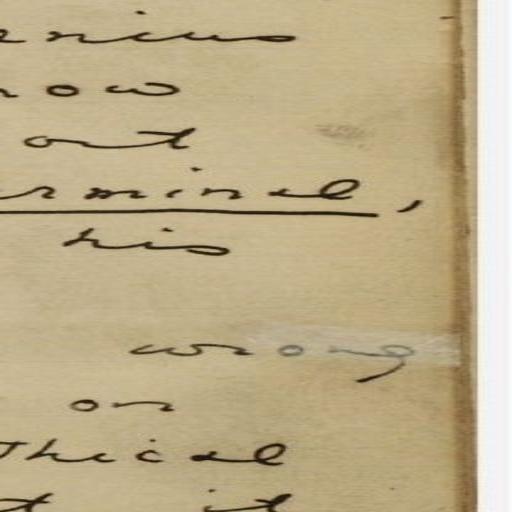 enius
now
out
erminal,
his
wrong
on
thical
t it